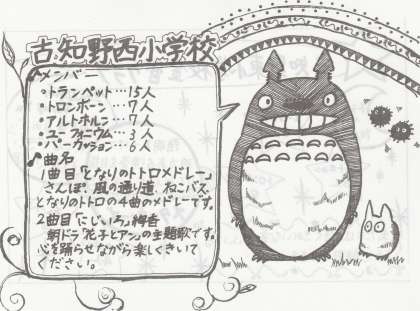 古知野西小学校
♪メンバー
・トランペット…15人
・トロンボーン…7人
・アルトホルン…7人
・ユーフォニウム…3人
・パーカッション…6人
♪曲名
1曲目「となりのトトロメドレー」
さんぽ、風の通り道、ねこバス、
となりのトトロの4曲のメドレーです。
2曲目「にじいろ」絢香
朝ドラ「花子とアン」の主題歌です。
心を踊らせながら楽しくきいて
ください。